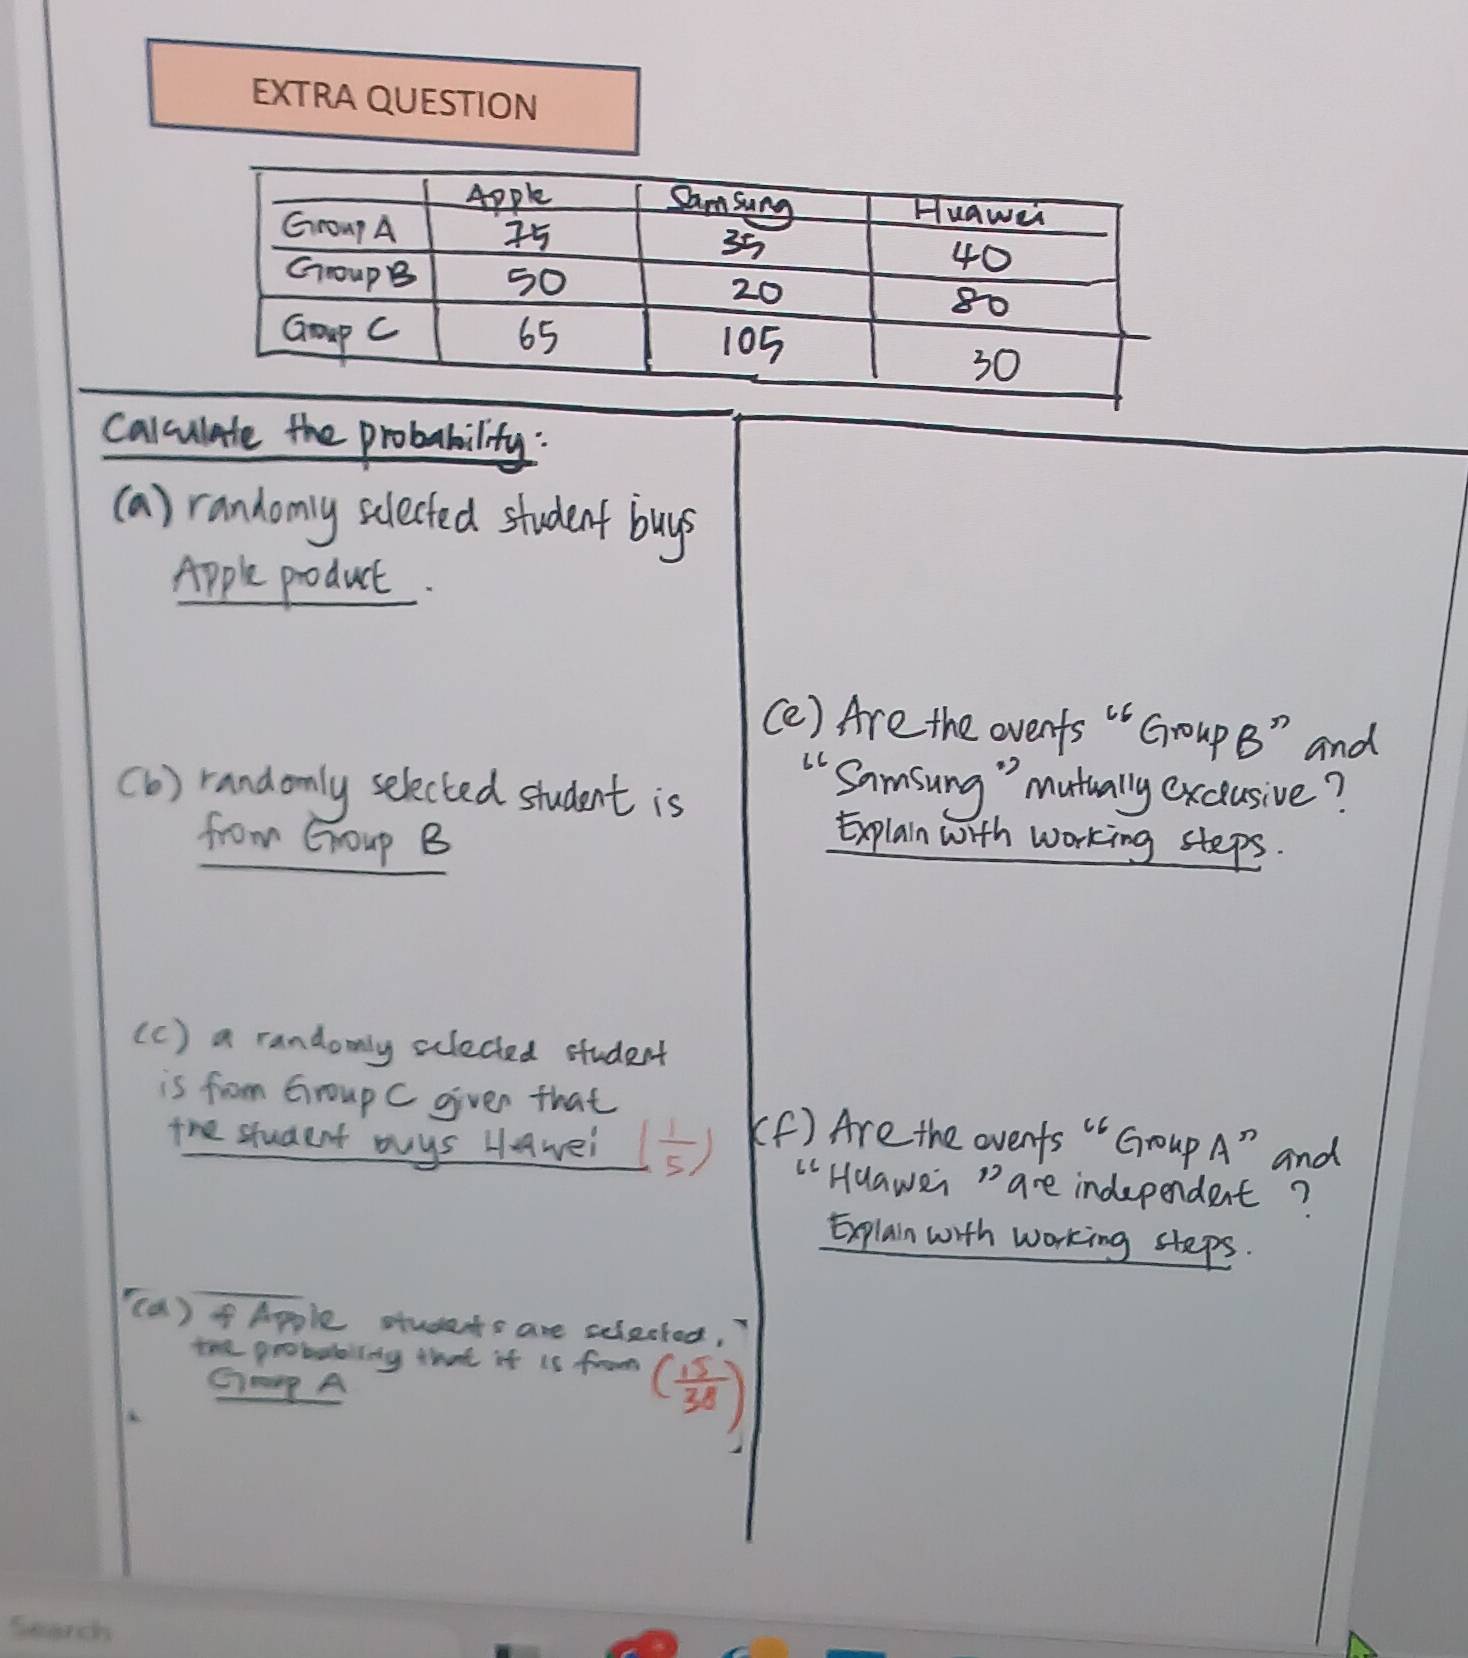 EXTRA QUESTION
Apple Samsung Huawei
Group A 75 35 40
Group B 50 20 80
Group C 65 105 30
Calculate the probability:
(a) randomly selected student buys
Apple product.
(b) randomly selected student is
from Group B
(c) a randomly selected student
is from Group C given that
the student buys Hawei (1/5)
(d) if Apple students are selected,
the probability that it is from (15/38)
Group A
(e) Are the events “Group B” and
“Samsung” mutually exclusive?
Explain with working steps.
(f) Are the events “Group A” and
“Huawei” are independent?
Explain with working steps.
Search